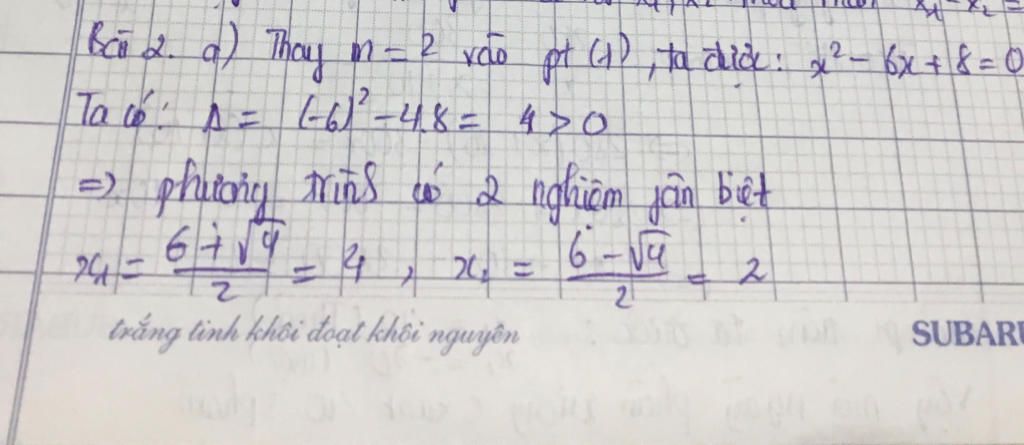 x₁ - x₂ =
Bài 2. a) Thay m = 2 vào pt (1), ta được: x² - 6x + 8 = 0
Ta có: Δ = (-6)² - 4.8 = 4 > 0
=> phương trình có 2 nghiệm fân biệt
x₁ = (6 + √4)/2 = 4, x₂ = (6 - √4)/2 = 2
trắng tinh khôi đoạt khôi nguyên
SUBARU